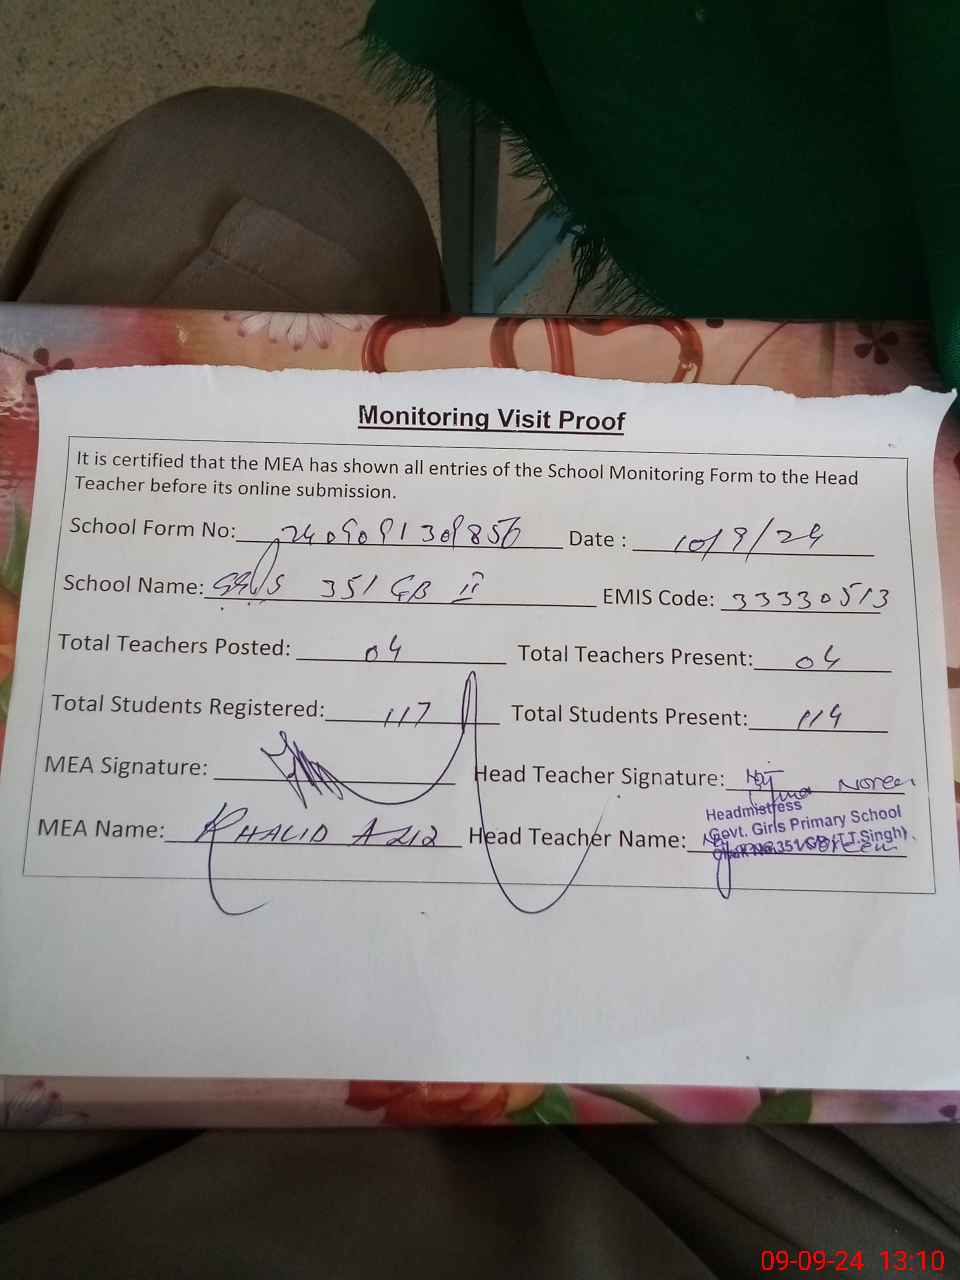 Monitoring Visit Proof
It is certified that the MEA has shown all entries of the School Monitoring Form to the Head
Teacher before its online submission.
School Form No: 2409091309856 Date : 10/9/24
School Name: GGPS 351 GB II EMIS Code: 33330513
Total Teachers Posted: 04 Total Teachers Present: 04
Total Students Registered: 117 Total Students Present: 114
MEA Signature: Head Teacher Signature: Noreen
Headmistress
MEA Name: KHALID AZIZ Head Teacher Name:
Govt. Girls Primary School
Chak No.351 GB (T.T.Singh).
09-09-24 13:10